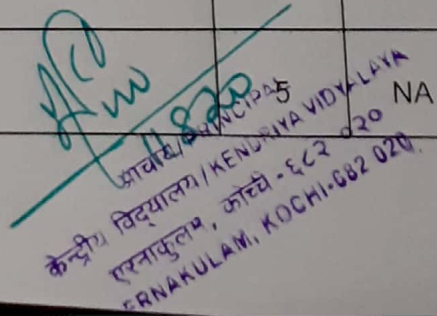 5 NA
प्राचार्य/PRINCIPAL
केन्द्रीय विद्यालय/KENDRIYA VIDYALAYA
एरनाकुलम, कोच्ची-६८२ ०२०
ERNAKULAM, KOCHI-682 020.